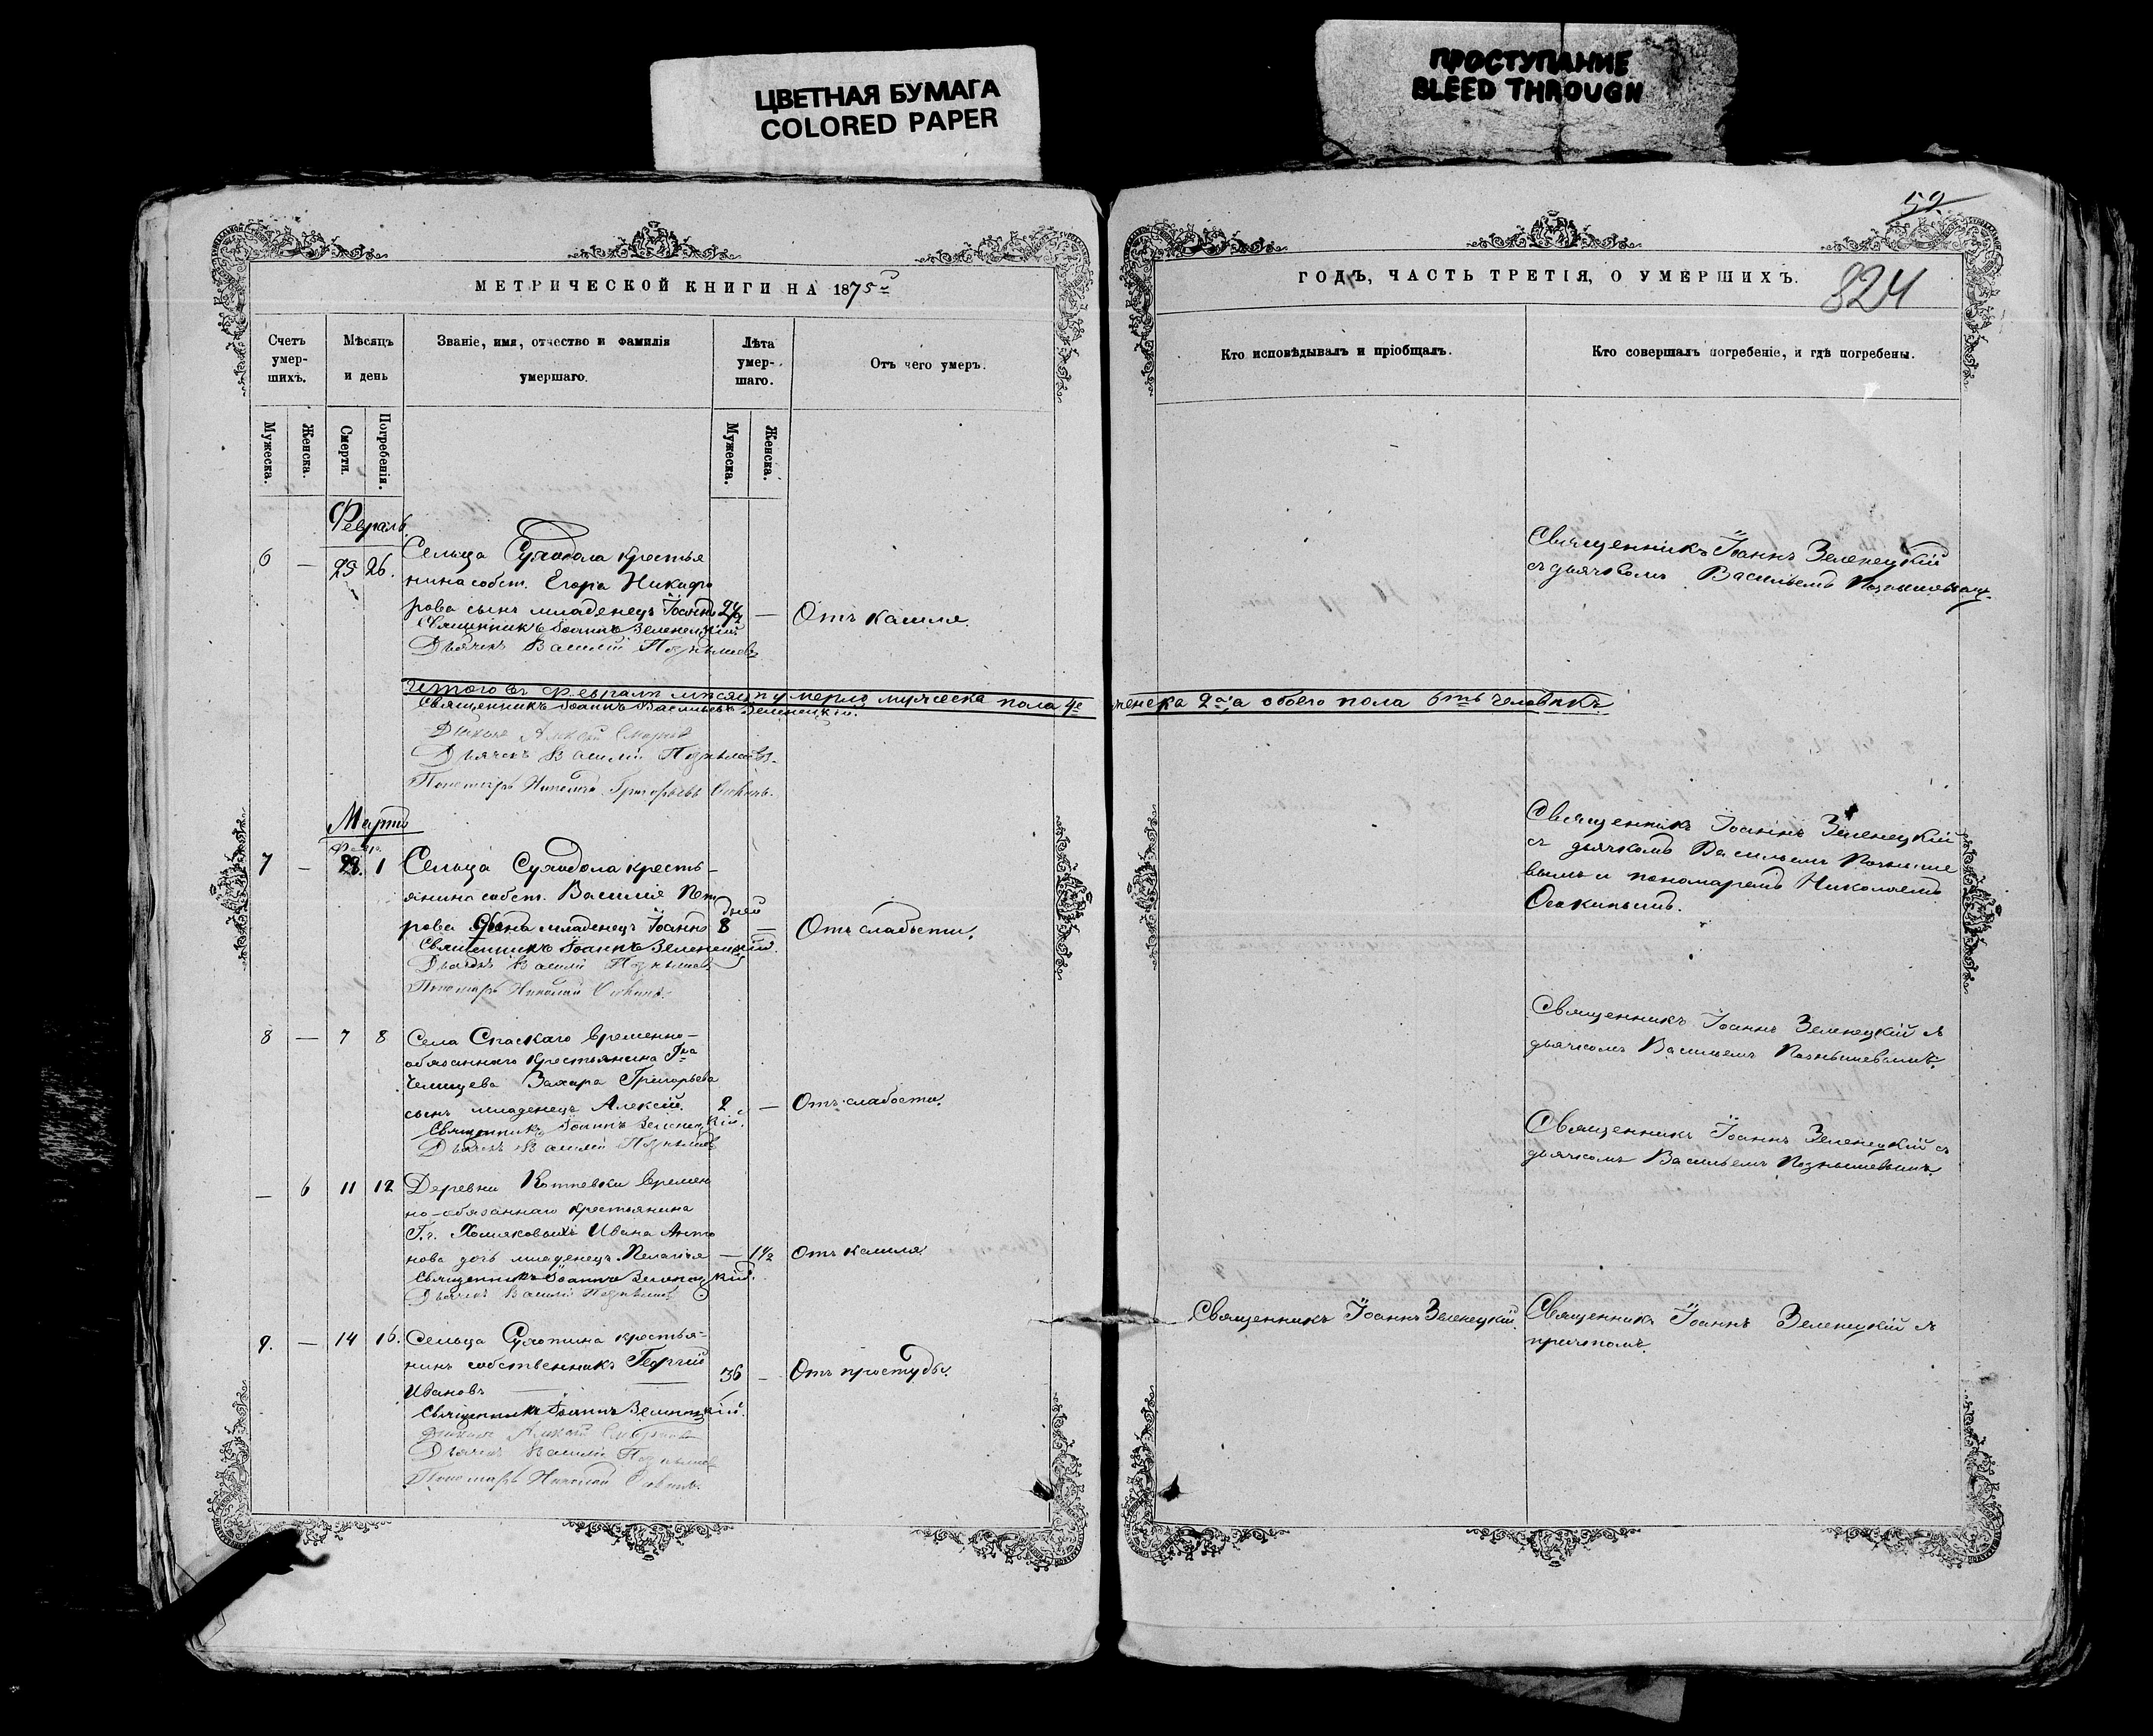 ЦВЕТНАЯ БУМАГА
COLORED PAPER
ПРОСТУПАНИЕ
BLEED THROUGH
МЕТРИЧЕСКОЙ КНИГИ НА 1875й
Счетъ умер-шихъ.
Мѣсяцъ и день
Званіе, имя, отчество и фамилія умершаго.
Лѣта умер-шаго.
Отъ чего умеръ.
Мужеска.
Женска.
Смерти.
Погребенія.
Мужеска.
Женска.
Февраль
6 — 25 26. Сельца Суходола крестья
нина собст. Егора Никифо
рова сынъ младенецъ Іоаннъ — Отъ кашля.
Священникъ Іоаннъ Зеленецкій
Дьячекъ Василій Познышевъ
Итого въ Февралѣ мѣсяцѣ умерло мужеска пола 4е
Священникъ Іоаннъ Васильевъ Зеленецкій.
Дьячекъ Василій Познышевъ.
Пономарь Николай Григорьевъ
Мартъ
Февр.
7 — 28. 1 Сельца Суходола кресть-
янина собст. Василія Пет
дней
рова сынъ младенецъ Іоаннъ 8 — Отъ слабости.
Священникъ Іоаннъ Зеленецкій.
Дьячекъ Василій Познышевъ
Пономарь Николай Осокинъ.
8 — 7 8 Села Спаскаго временно-
обязаннаго крестьянина Гна
Челищева Захара Григорьева
сынъ младенецъ Алексій. 2 — Отъ слабости.
Священникъ Іоаннъ Зеленецкій.
Дьячекъ Василій Познышевъ
— 6 11 12 Деревни времен
но-обязаннаго крестьянина
Г.г. Хомяковыхъ Ивана Анто
нова дочь младенецъ Пелагія — 1½ Отъ кашля.
Священникъ Іоаннъ Зеленецкій.
Дьячекъ Василій Познышевъ
9. — 14 16. Сельца крестья-
нинъ собственникъ Георгій
Ивановъ 36 — Отъ простуды.
Священникъ Іоаннъ Зеленецкій.
Дьячекъ Василій Познышевъ
Пономарь Николай Осокинъ.
52
824
ГОДЪ, ЧАСТЬ ТРЕТІЯ, О УМЕРШИХЪ.
Кто исповѣдывалъ и пріобщалъ.
Кто совершалъ погребеніе, и гдѣ погребены.
Священникъ Іоаннъ Зеленецкій
съ дьячкомъ Васильемъ Познышевым.
женска 2а, а обоего пола 6ть человѣкъ
Священникъ Іоаннъ Зеленецкій
съ дьячкомъ Васильемъ Позныше
вымъ и пономаремъ Николаемъ
Осокинымъ.
Священникъ Іоаннъ Зеленецкій съ
дьячкомъ Васильемъ Познышевымъ.
Священникъ Іоаннъ Зеленецкій съ
дьячкомъ Васильемъ Познышевымъ.
Священникъ Іоаннъ Зеленецкій.
Священникъ Іоаннъ Зеленецкій съ
причтомъ.